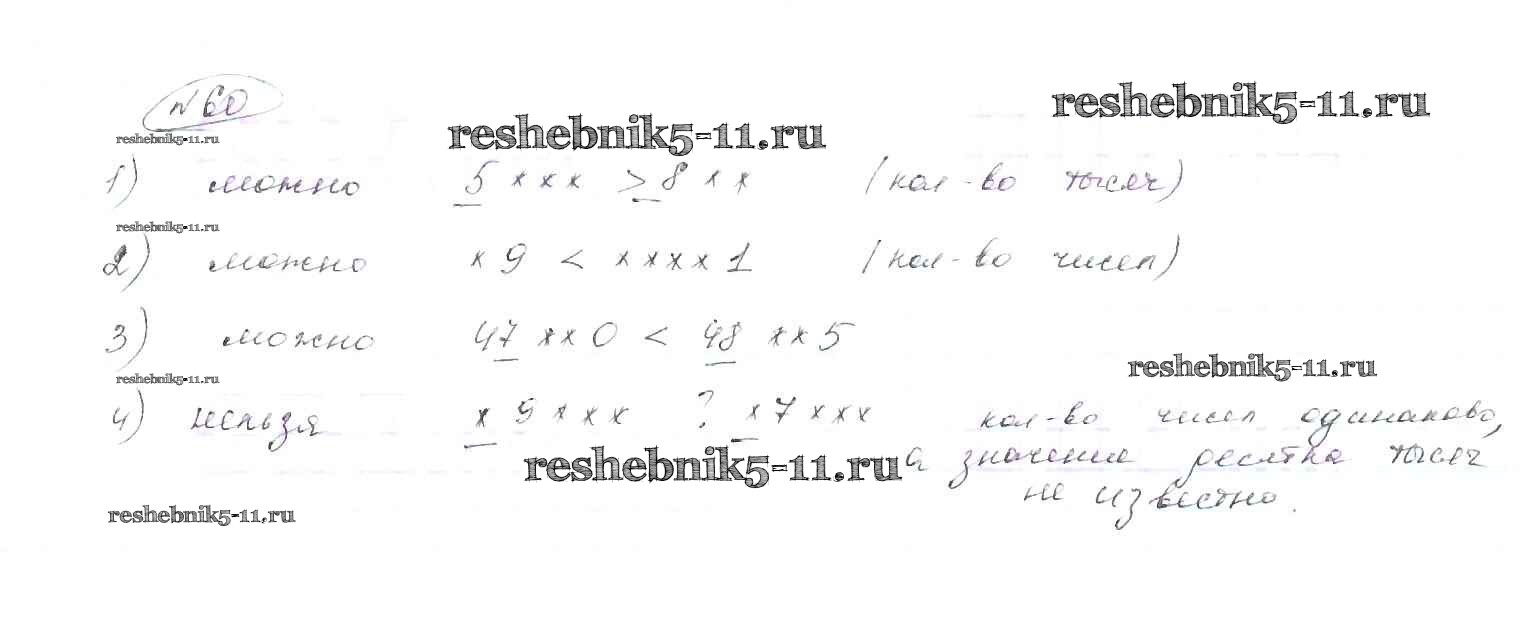 №60
reshebnik5-11.ru
reshebnik5-11.ru
reshebnik5-11.ru
1) можно 5*** > 8** (кол-во тысяч)
reshebnik5-11.ru
2) можно *9 < ****1 (кол-во чисел)
3) можно 47**0 < 48**5
reshebnik5-11.ru
reshebnik5-11.ru
4) нельзя *9*** ? *7*** кол-во чисел одинаково,
reshebnik5-11.ru а значение десятка тысяч
не известно.
reshebnik5-11.ru